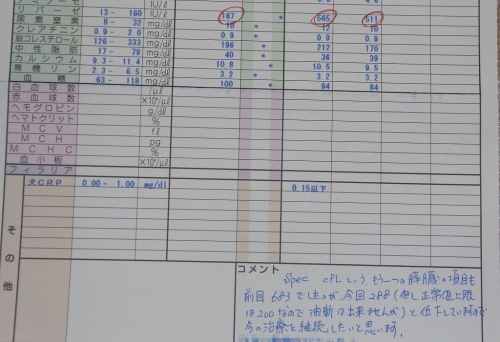 IU/l
リパーゼ 13 - 160 IU/l 187 * 565 511
尿素窒素 8 - 32 mg/dl 10 * 12 10
クレアチニン 0.9 - 2.0 mg/dl 0.9 * 0.9 0.9
総コレステロール 126 - 333 mg/dl 196 * 212 170
中性脂肪 17 - 79 mg/dl 40 * 36 39
カルシウム 9.3 - 11.4 mg/dl 10.8 * 10.5 10.5
無機リン 2.3 - 6.5 mg/dl 3.2 * 3.2 3.2
血糖 63 - 118 mg/dl 100 * 94 84
白血球数 /μl
赤血球数 ×10⁴/μl
ヘモグロビン g/dl
ヘマトクリット %
MCV fl
MCH pg
MCHC %
血小板 ×10⁴/μl
フィラリア
犬CRP 0.00 - 1.00 mg/dl 0.15以下
その他
コメント
Spec cPLという、もう一つの膵臓の項目も
前回683でしたが、今回288（但し正常値上限
は200なので油断は出来ませんが）と低下していますので
今の治療を継続したいと思います。